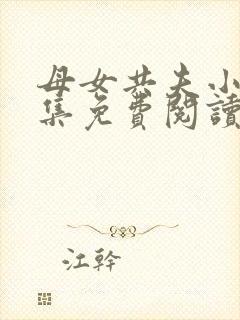 母女共夫小
集免費閱讀
江幹